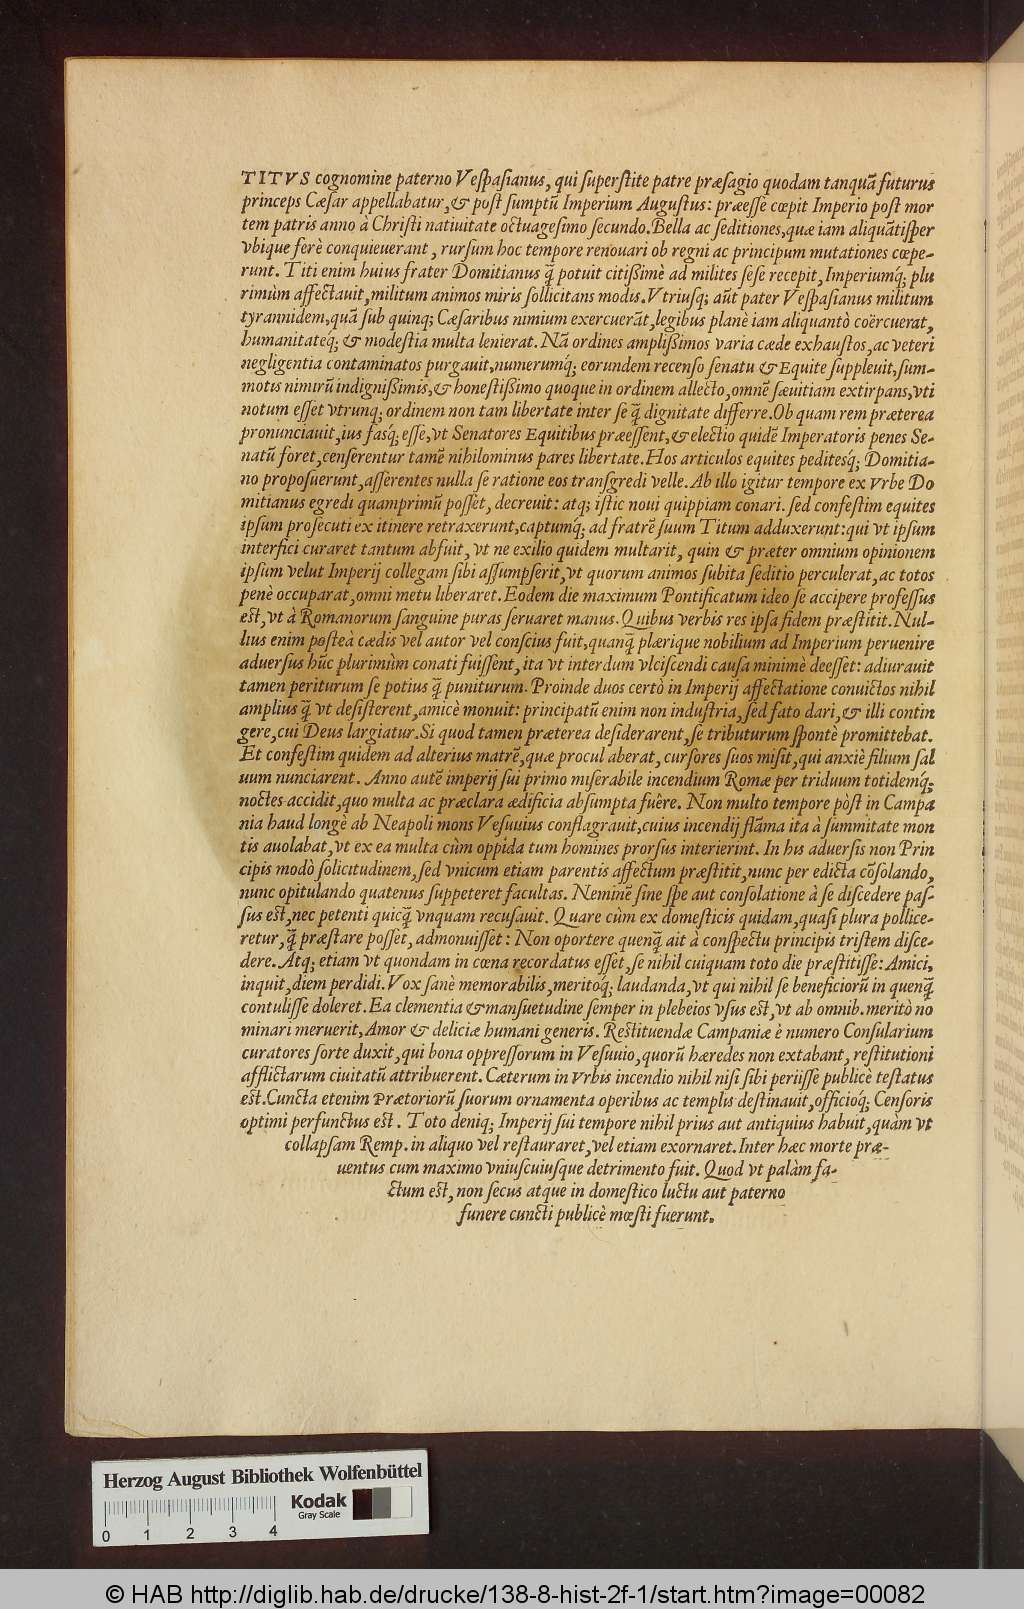 TITVS cognomine paterno Veſpaſianus, qui ſuperſtite patre præſagio quodam tanquã futurus
princeps Cæſar appellabatur, & poſt ſumptũ Imperium Auguſtus: præeſſe cœpit Imperio poſt mor
tem patris anno à Chriſti natiuitate octuageſimo ſecundo. Bella ac ſeditiones, quæ iam aliquãtiſper
vbique ferè conquieuerant, rurſum hoc tempore renouari ob regni ac principum mutationes cœpe-
runt. Titi enim huius frater Domitianus q̃ potuit citißimè ad milites ſeſe recepit, Imperiumq́; plu
rimùm affectauit, militum animos miris ſollicitans modis. Vtriuſq; aũt pater Veſpaſianus militum
tyrannidem, quã ſub quinq; Cæſaribus nimium exercuerãt, legibus planè iam aliquantò coërcuerat,
humanitateq́; & modeſtia multa lenierat. Nã ordines ampliſſimos varia cæde exhauſtos, ac veteri
negligentia contaminatos purgauit, numerumq́; eorundem recenſo ſenatu & Equite ſuppleuit, ſum-
motis nimirũ indignißimis, & honeſtißimo quoque in ordinem allecto, omnẽ ſæuitiam extirpans, vti
notum eſſet vtrunq; ordinem non tam libertate inter ſe q̃ dignitate differre. Ob quam rem præterea
pronunciauit, ius faſq́; eſſe, vt Senatores Equitibus præeſſent, & electio quidẽ Imperatoris penes Se-
natũ foret, cenſerentur tamẽ nihilominus pares libertate. Hos articulos equites pediteſq́; Domitia-
no propoſuerunt, aſſerentes nulla ſe ratione eos tranſgredi velle. Ab illo igitur tempore ex Vrbe Do
mitianus egredi quamprimũ poſſet, decreuit: atq; iſtic noui quippiam conari. ſed confeſtim equites
ipſum proſecuti ex itinere retraxerunt, captumq́; ad fratrẽ ſuum Titum adduxerunt: qui vt ipſum
interfici curaret tantum abfuit, vt ne exilio quidem multarit, quin & præter omnium opinionem
ipſum velut Imperij collegam ſibi aſſumpſerit, vt quorum animos ſubita ſeditio perculerat, ac totos
penè occuparat, omni metu liberaret. Eodem die maximum Pontificatum ideo ſe accipere profeſſus
eſt, vt à Romanorum ſanguine puras ſeruaret manus. Quibus verbis res ipſa fidem præſtitit. Nul-
lius enim poſteà cædis vel autor vel conſcius fuit, quanq̃ plærique nobilium ad Imperium peruenire
aduerſus hũc plurimùm conati fuiſſent, ita vt interdum vlciſcendi cauſa minimè deeſſet: adiurauit
tamen periturum ſe potius q̃ puniturum. Proinde duos certò in Imperij affectatione conuictos nihil
amplius q̃ vt deſiſterent, amicè monuit: principatũ enim non induſtria, ſed fato dari, & illi contin
gere, cui Deus largiatur. Si quod tamen præterea deſiderarent, ſe tributurum ſpontè promittebat.
Et confeſtim quidem ad alterius matrẽ, quæ procul aberat, curſores ſuos miſit, qui anxiè filium ſal
uum nunciarent. Anno autẽ imperij ſui primo miſerabile incendium Romæ per triduum totidemq́;
noctes accidit, quo multa ac præclara ædificia abſumpta fuêre. Non multo tempore pòſt in Campa
nia haud longè ab Neapoli mons Veſuuius conflagrauit, cuius incendij flãma ita à ſummitate mon
tis auolabat, vt ex ea multa cùm oppida tum homines prorſus interierint. In his aduerſis non Prin
cipis modò ſolicitudinem, ſed vnicum etiam parentis affectum præſtitit, nunc per edicta cõſolando,
nunc opitulando quatenus ſuppeteret facultas. Neminẽ ſine ſpe aut conſolatione à ſe diſcedere paſ-
ſus eſt, nec petenti quicq̃ vnquam recuſauit. Quare cùm ex domeſticis quidam, quaſi plura pollice-
retur, q̃ præſtare poſſet, admonuiſſet: Non oportere quenq̃ ait à conſpectu principis triſtem diſce-
dere. Atq; etiam vt quondam in cœna recordatus eſſet, ſe nihil cuiquam toto die præſtitiſſe: Amici,
inquit, diem perdidi. Vox ſanè memorabilis, meritoq́; laudanda, vt qui nihil ſe beneficiorũ in quenq̃
contuliſſe doleret. Ea clementia & manſuetudine ſemper in plebeios vſus eſt, vt ab omnib. meritò no
minari meruerit, Amor & deliciæ humani generis. Reſtituendæ Campaniæ è numero Conſularium
curatores ſorte duxit, qui bona oppreſſorum in Veſuuio, quorũ hæredes non extabant, reſtitutioni
afflictarum ciuitatũ attribuerent. Cæterum in Vrbis incendio nihil niſi ſibi periiſſe publicè teſtatus
eſt. Cuncta etenim Prætoriorũ ſuorum ornamenta operibus ac templis deſtinauit, officioq́; Cenſoris
optimi perfunctus eſt. Toto deniq; Imperij ſui tempore nihil prius aut antiquius habuit, quàm vt
collapſam Remp. in aliquo vel reſtauraret, vel etiam exornaret. Inter hæc morte præ-
uentus cum maximo vniuſcuiuſque detrimento fuit. Quod vt palàm fa-
ctum eſt, non ſecus atque in domeſtico luctu aut paterno
funere cuncti publicè mœſti fuerunt.
Herzog August Bibliothek Wolfenbüttel
Kodak
Gray Scale
0 1 2 3 4
© HAB http://diglib.hab.de/drucke/138-8-hist-2f-1/start.htm?image=00082